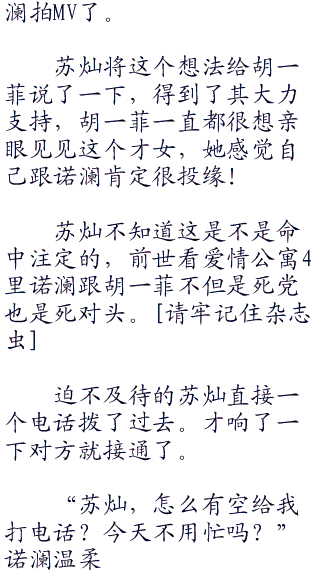 澜拍MV了。
苏灿将这个想法给胡一
菲说了一下，得到了其大力
支持，胡一菲一直都很想亲
眼见见这个才女，她感觉自
己跟诺澜肯定很投缘！
苏灿不知道这是不是命
中注定的，前世看爱情公寓4
里诺澜跟胡一菲不但是死党
也是死对头。[请牢记住杂志
虫]
迫不及待的苏灿直接一
个电话拨了过去。才响了一
下对方就接通了。
“苏灿，怎么有空给我
打电话？今天不用忙吗？”
诺澜温柔